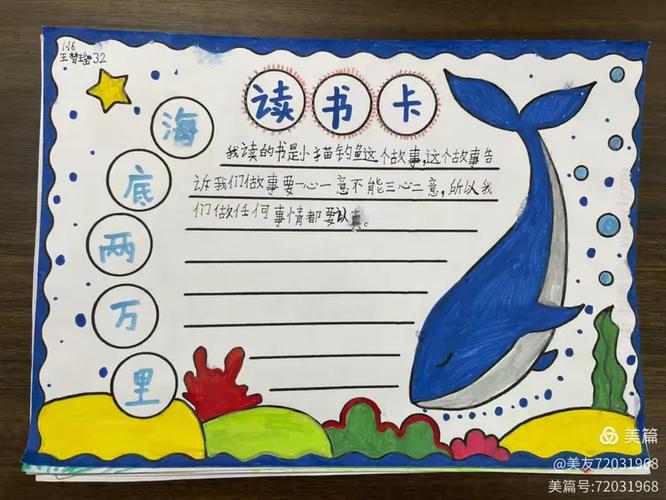 1.16
王梦瑶32
读书卡
海底两万里
我读的书是小猫钓鱼这个故事,这个故事告
诉我们做事要一心一意不能三心二意,所以我
们做任何事情都要认真。
美篇
@美友72031968
美篇号:72031968